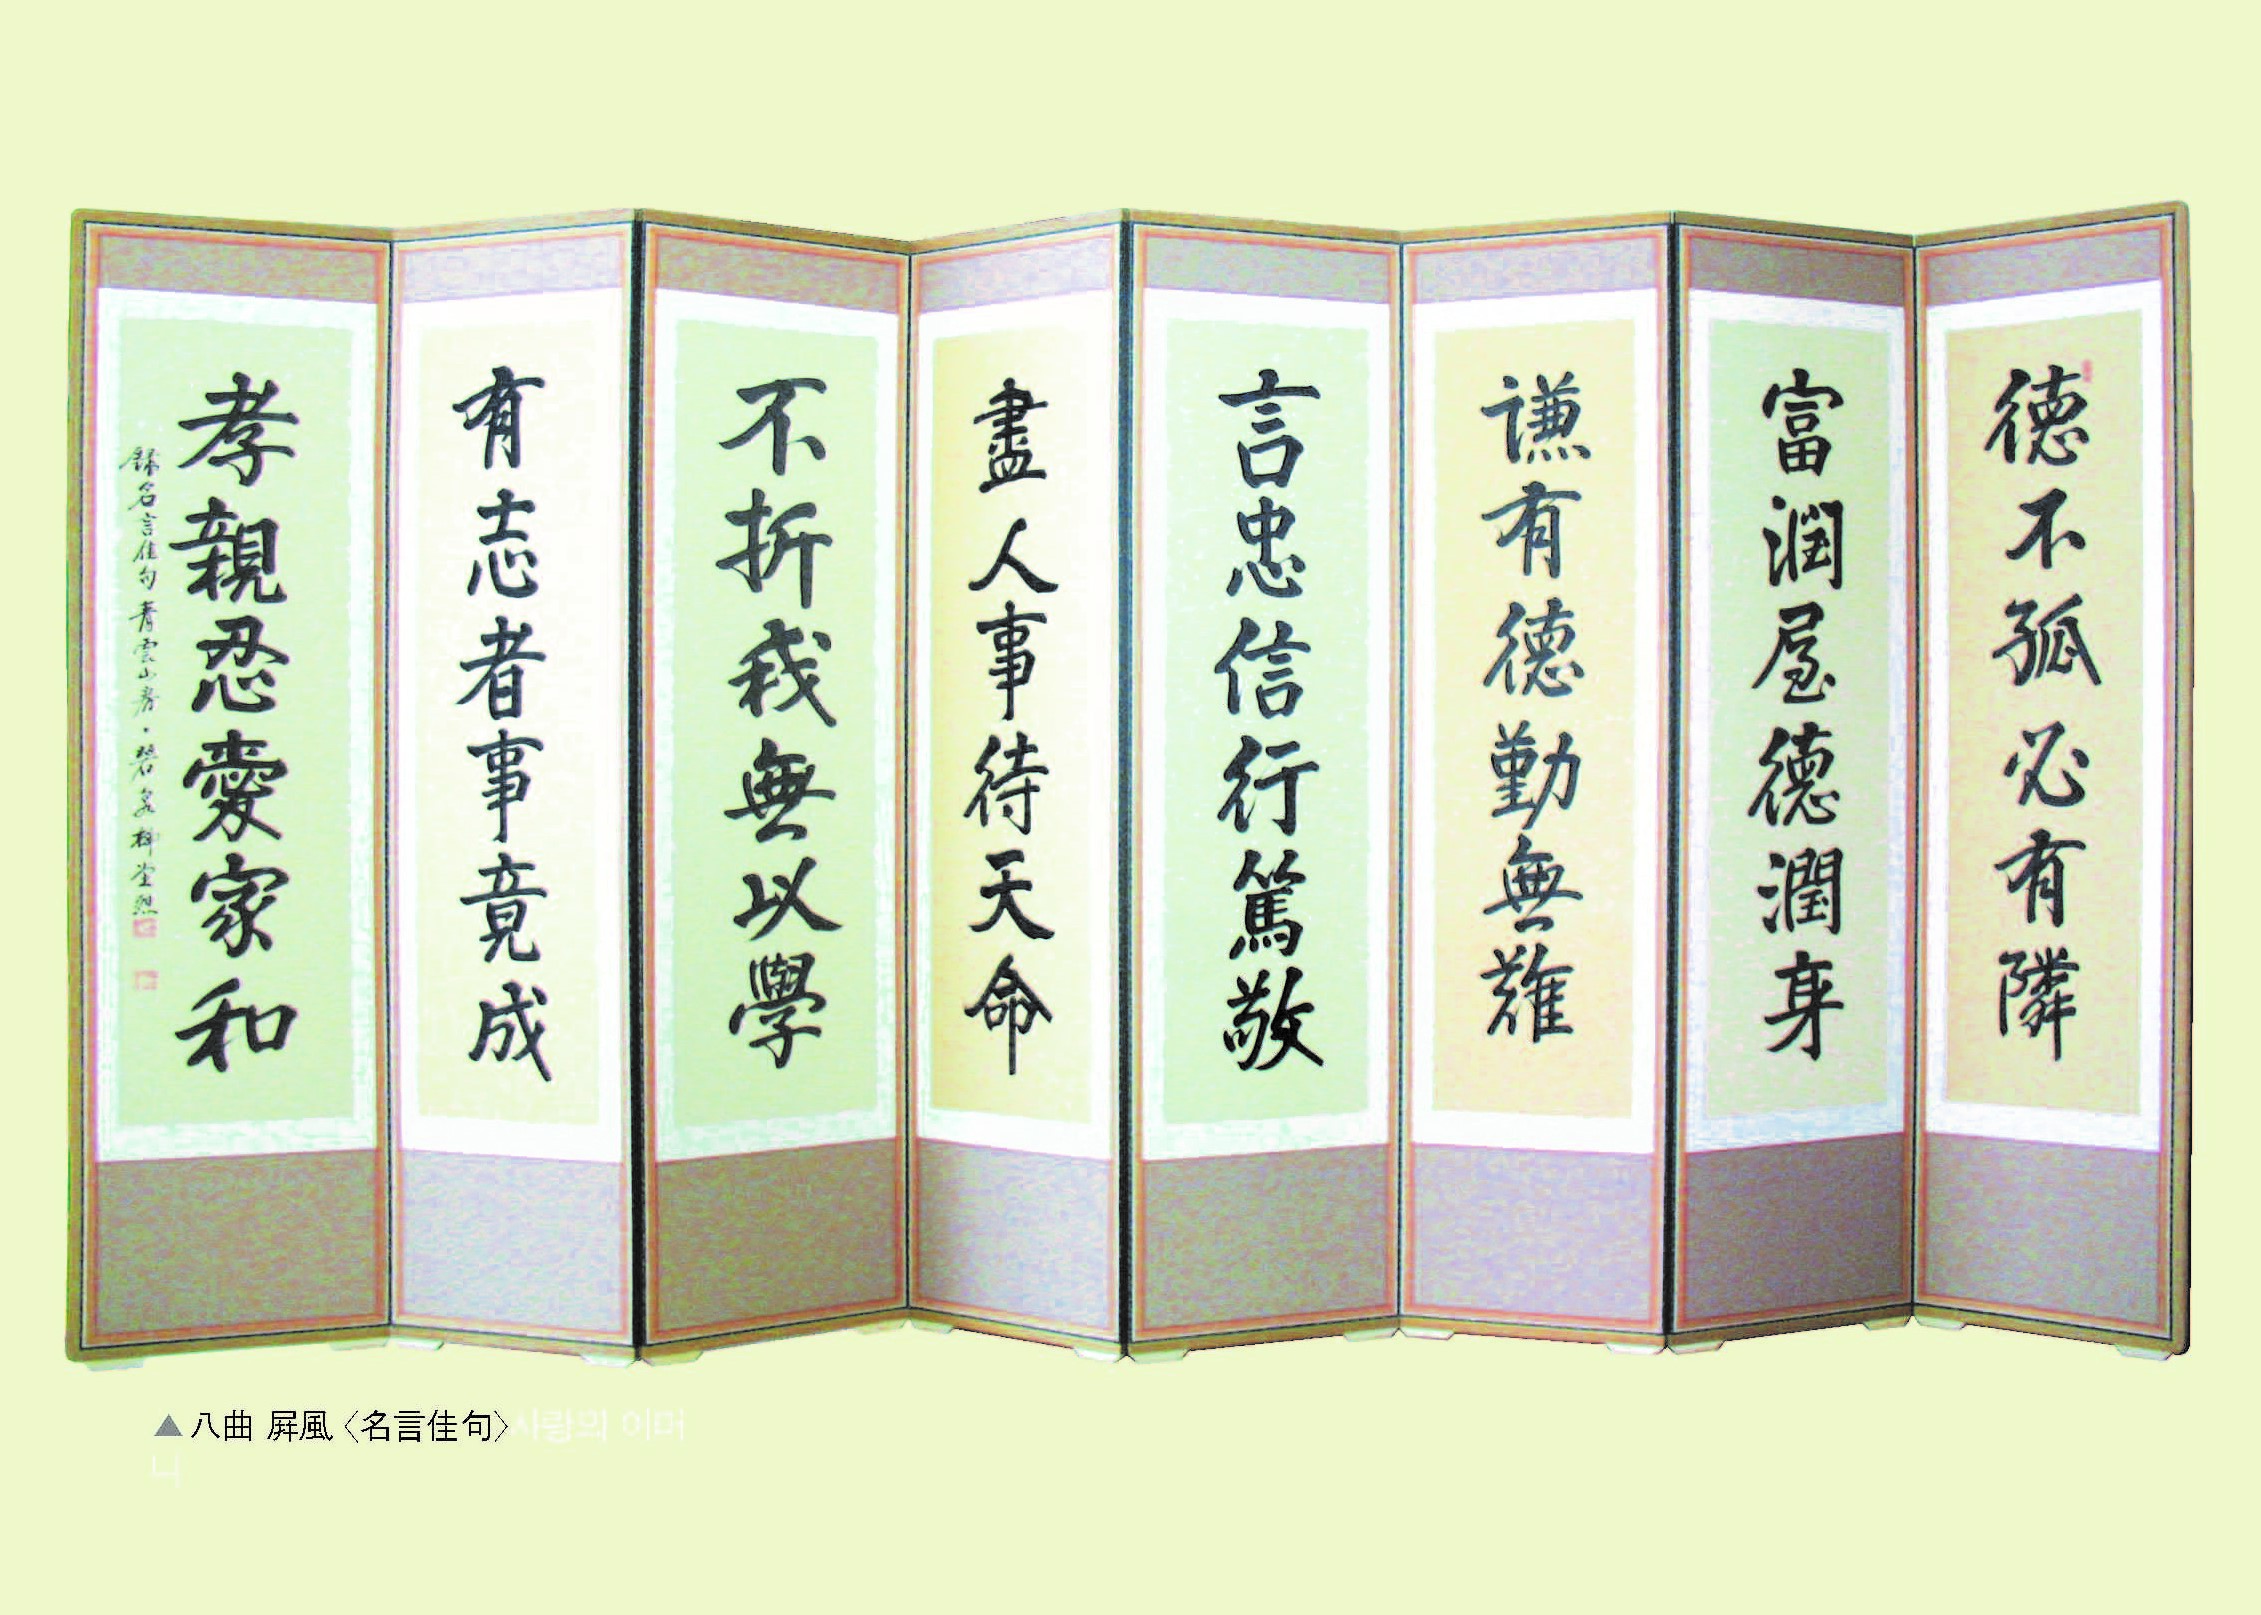 德不孤必有隣
富潤屋德潤身
謙有德勤無難
言忠信行篤敬
盡人事待天命
不折我無以學
有志者事竟成
孝親忍愛家和
錄名言佳句 青雲山房
▲ 八曲 屛風 〈名言佳句〉사랑의 이머
니